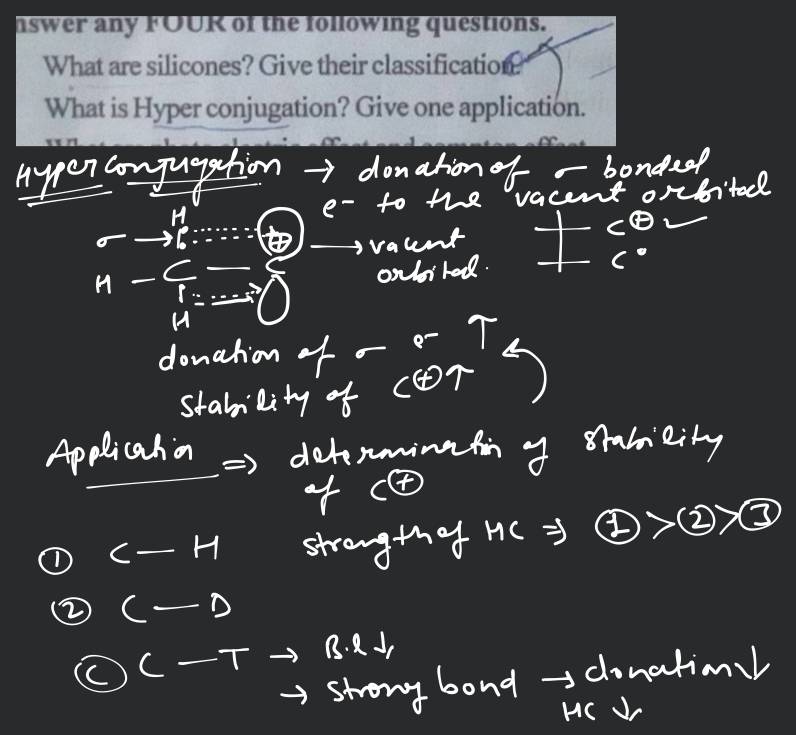 nswer any FOUR of the following questions.
What are silicones? Give their classification.
What is Hyper conjugation? Give one application.
Hyperconjugation → donation of σ bonded
e- to the vacent orbital
H
σ →
⊕ → vacent
orbital.
C⊕ ✓
C•
H - C — C
H
donation of σ e- ↑
stability of C⊕↑
Application ⇒ determination of stability
of C⊕
strength of HC ⇒ ① > ② > ③
① C — H
② C — D
Ⓒ C — T → B.l ↓
→ strong bond → donation ↓
HC ↓